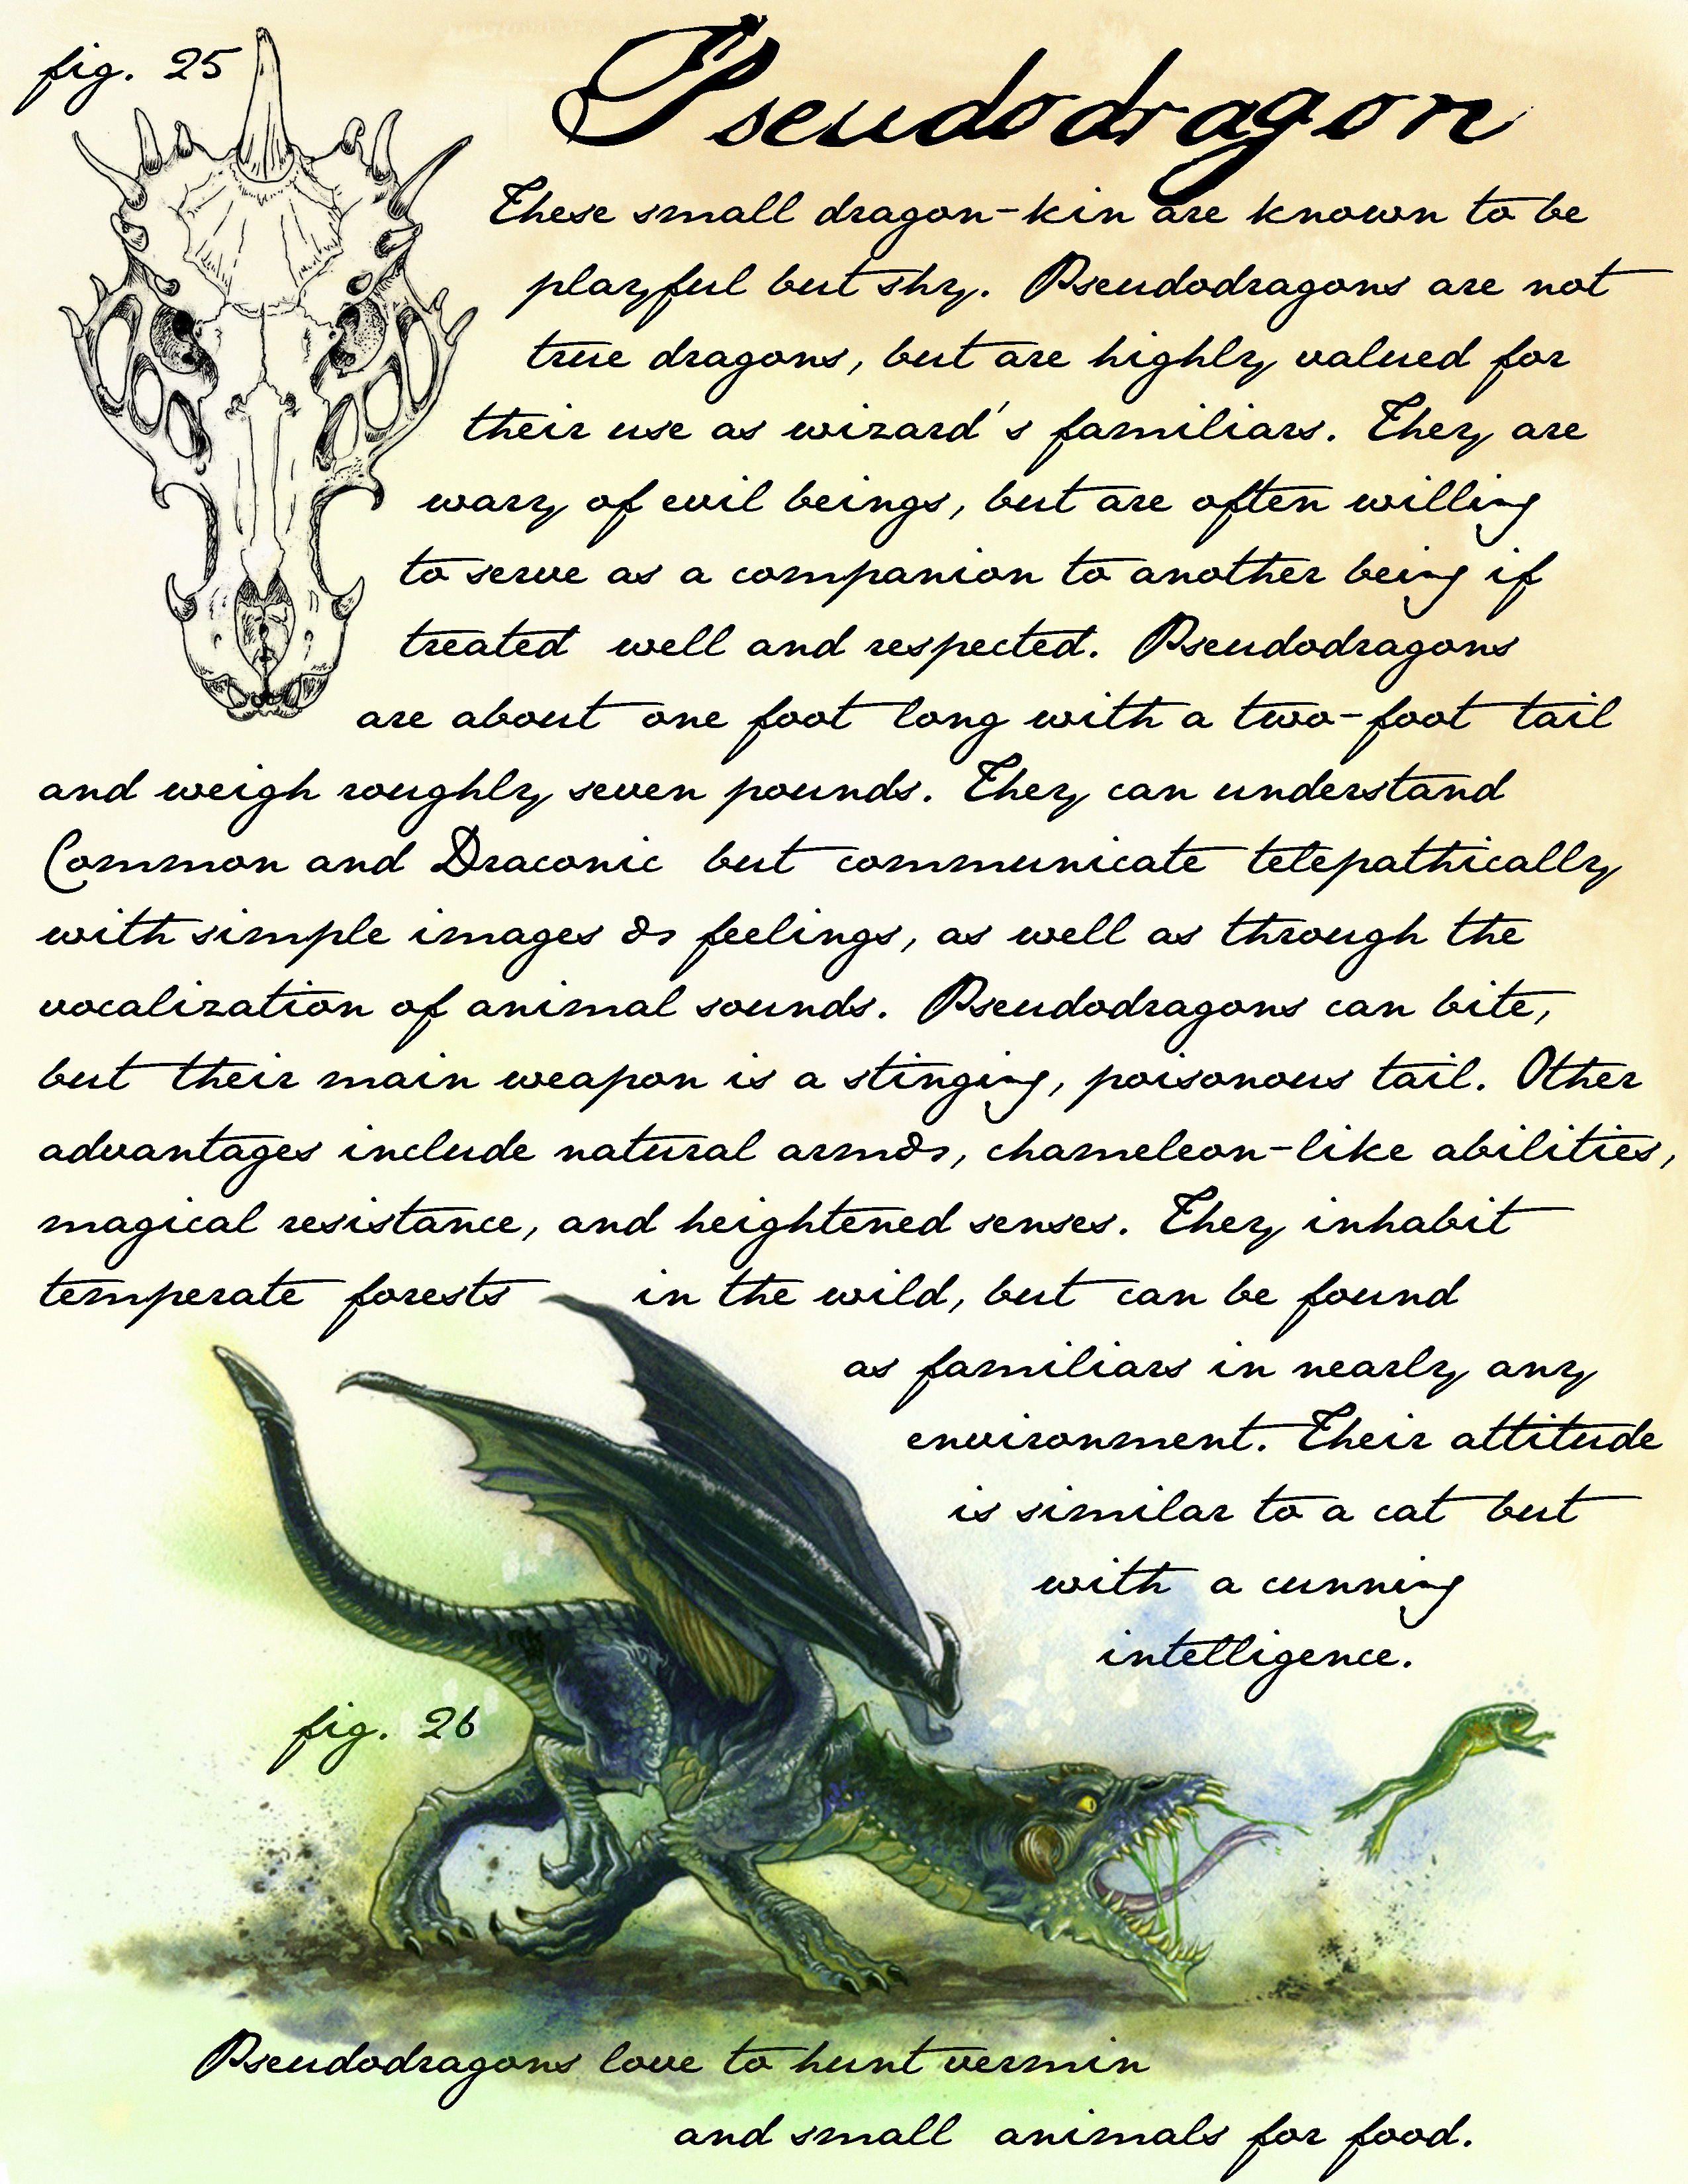 fig. 25
Pseudodragon
These small dragon-kin are known to be
playful but shy. Pseudodragons are not
true dragons, but are highly valued for
their use as wizard's familiars. They are
wary of evil beings, but are often willing
to serve as a companion to another being if
treated well and respected. Pseudodragons
are about one foot long with a two-foot tail
and weigh roughly seven pounds. They can understand
Common and Draconic but communicate telepathically
with simple images or feelings, as well as through the
vocalization of animal sounds. Pseudodragons can bite,
but their main weapon is a stinging, poisonous tail. Other
advantages include natural armor, chameleon-like abilities,
magical resistance, and heightened senses. They inhabit
temperate forests in the wild, but can be found
as familiars in nearly any
environment. Their attitude
is similar to a cat but
with a cunning
intelligence.
fig. 26
Pseudodragons love to hunt vermin
and small animals for food.